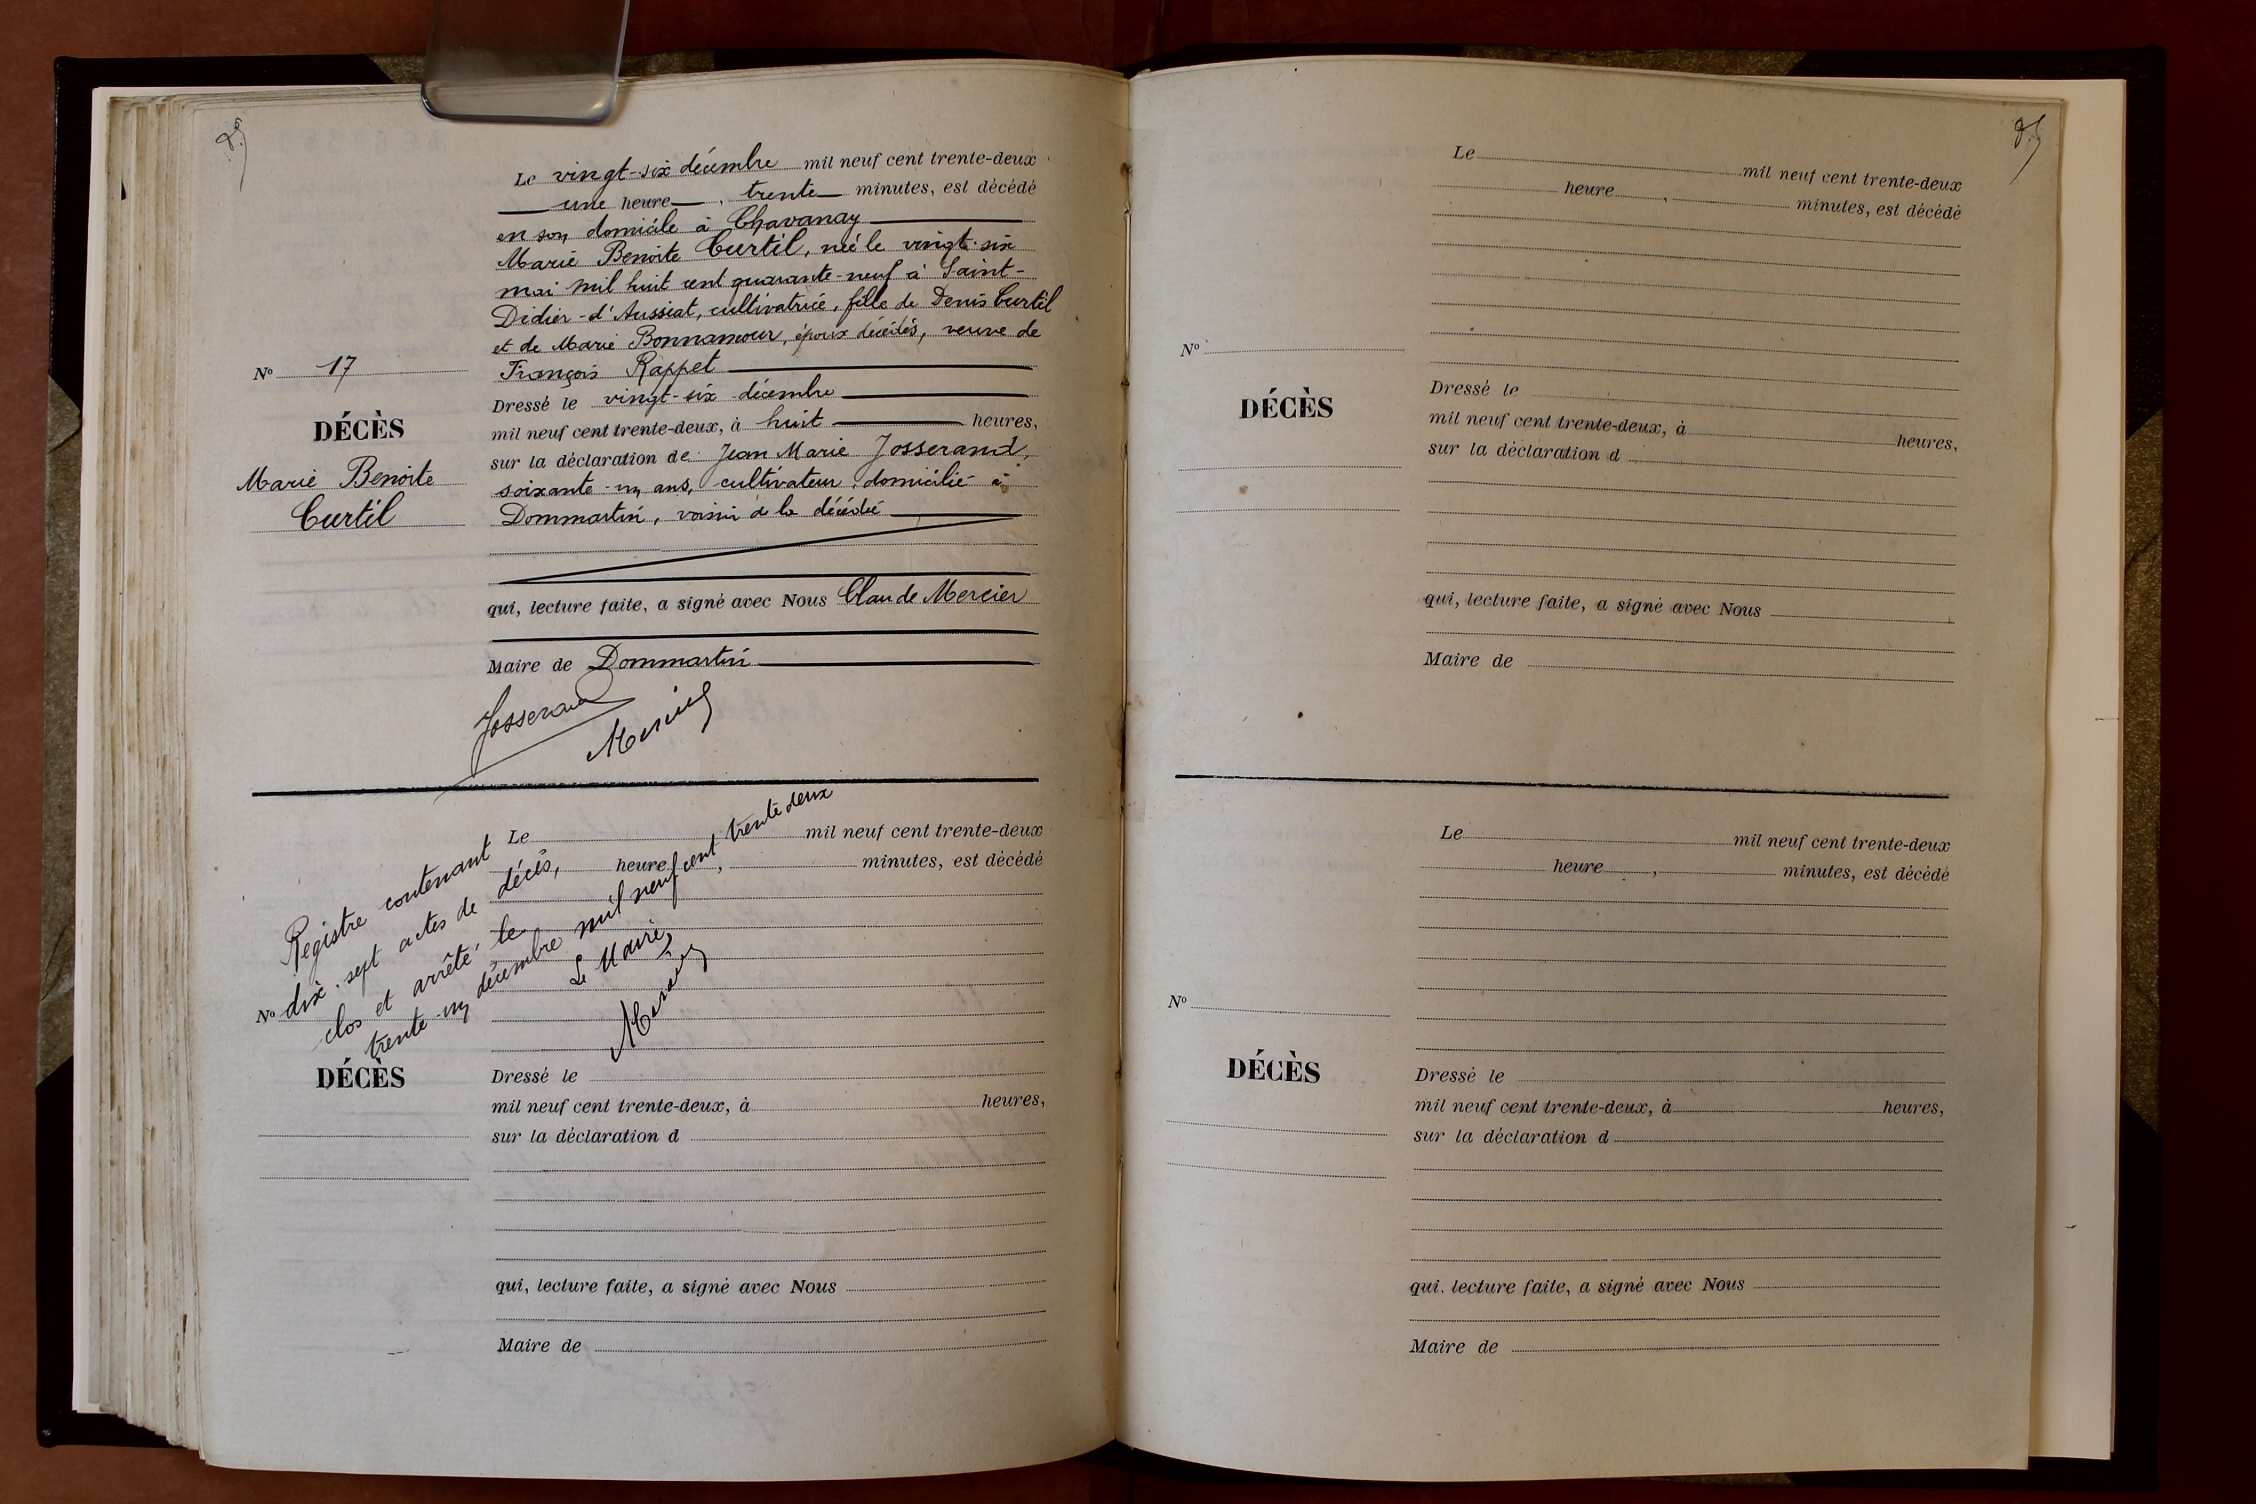 Le vingt-six décembre mil neuf cent trente-deux
une heure, trente minutes, est décédé
en son domicile à Chavanay
Marie Benoite Curtil, née le vingt-six
mai mil huit cent quarante-neuf à Saint-
Didier-d'Aussiat, cultivatrice, fille de Denis Curtil
et de Marie Bonnamour, époux décédés, veuve de
François Rappet
Nº 17
DÉCÈS
Marie Benoite
Curtil
Dressé le vingt-six décembre
mil neuf cent trente-deux, à huit heures,
sur la déclaration de Jean Marie Josserand,
soixante-un ans, cultivateur, domicilié à
Dommartin, voisin de la décédée
qui, lecture faite, a signé avec Nous Claude Mercier
Maire de Dommartin
Josserand
Mercier
Registre contenant
dix-sept actes de décès,
clos et arrêté le
trente-un décembre mil neuf cent trente deux
Le Maire,
Mercier
Le mil neuf cent trente-deux
heure, minutes, est décédé
Nº
DÉCÈS
Dressé le
mil neuf cent trente-deux, à heures,
sur la déclaration d
qui, lecture faite, a signé avec Nous
Maire de
Le mil neuf cent trente-deux
heure, minutes, est décédé
Nº
DÉCÈS
Dressé le
mil neuf cent trente-deux, à heures,
sur la déclaration d
qui, lecture faite, a signé avec Nous
Maire de
Le mil neuf cent trente-deux
heure, minutes, est décédé
Nº
DÉCÈS
Dressé le
mil neuf cent trente-deux, à heures,
sur la déclaration d
qui, lecture faite, a signé avec Nous
Maire de